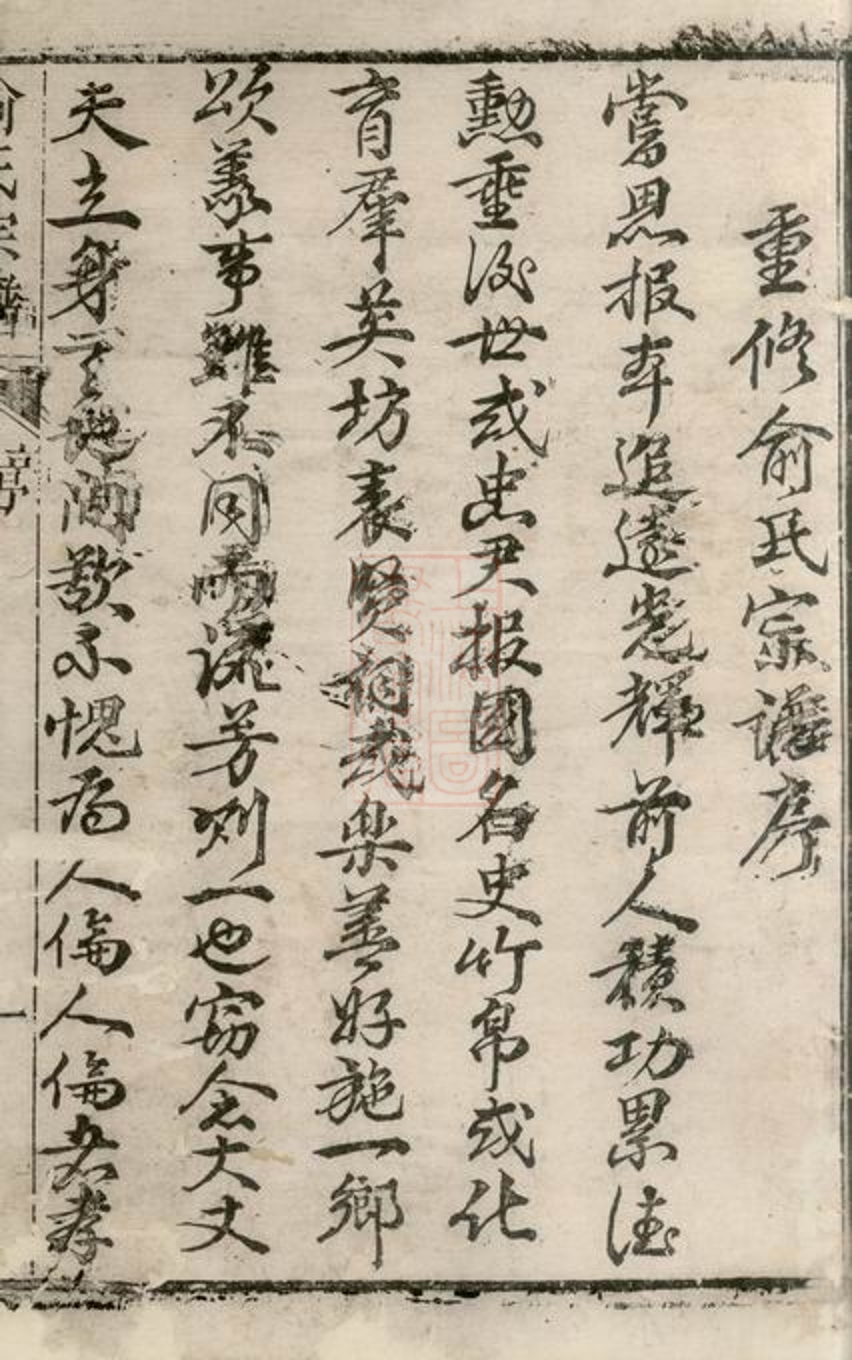 重修俞氏宗譜序
嘗思报本追遠光輝前人積功累德
勳垂後世或忠君报國名史竹帛或化
育羣英坊表賢祠或樂善好施一鄉
頌羡事雖不同而流芳则一也窃念大丈
夫立身天地間欲不愧為人倫人倫者孝
俞氏宗譜
序
一